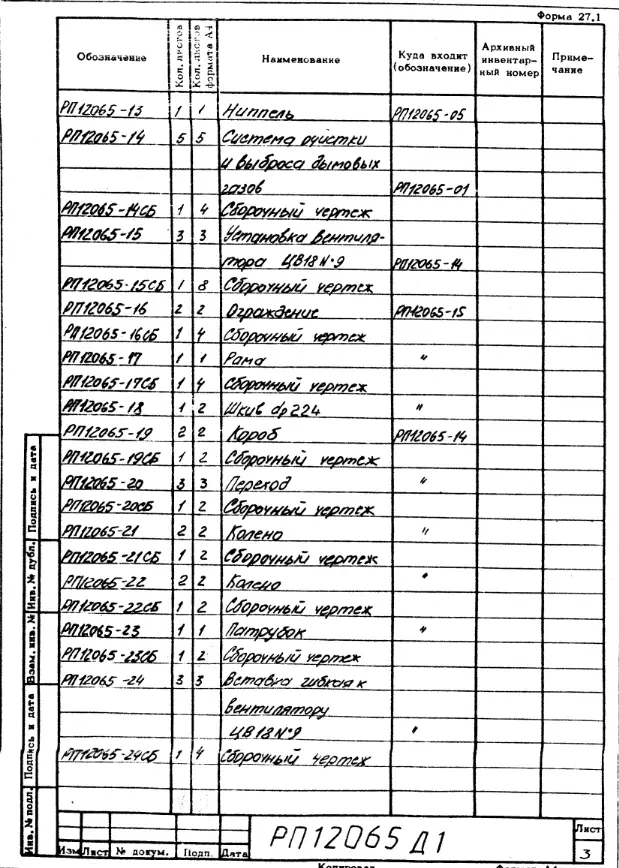 Форма 27.1
Обозначение Кол. листов Кол. листов формата А4 Наименование Куда входит (обозначение) Архивный инвентарный номер Примечание
РП12065-13 1 1 Ниппель РП12065-05
РП12065-14 5 5 Система очистки
и выброса дымовых
газов РП12065-01
РП12065-14СБ 1 4 Сборочный чертеж
РП12065-15 3 3 Установка вентиля-
тора ЦВ18 N°9 РП12065-14
РП12065-15СБ 1 8 Сборочный чертеж
РП12065-16 2 2 Ограждение РП12065-15
РП12065-16СБ 1 4 Сборочный чертеж
РП12065-17 1 1 Рама "
РП12065-17СБ 1 4 Сборочный чертеж
РП12065-18 1 2 Шкив dр224 "
РП12065-19 2 2 Короб РП12065-14
РП12065-19СБ 1 2 Сборочный чертеж
РП12065-20 3 3 Переход "
РП12065-20СБ 1 2 Сборочный чертеж
РП12065-21 2 2 Колено "
РП12065-21СБ 1 2 Сборочный чертеж
РП12065-22 2 2 Колено "
РП12065-22СБ 1 2 Сборочный чертеж
РП12065-23 1 1 Патрубок "
РП12065-23СБ 1 2 Сборочный чертеж
РП12065-24 3 3 Вставка гибкая к
вентилятору
ЦВ18 N°9 "
РП12065-24СБ 1 4 Сборочный чертеж
Подпись и дата
Инв. № дубл.
Взам. инв. №
Подпись и дата
Инв. № подл.
Изм Лист № докум. Подп. Дата
РП12065 Д1
Лист
3